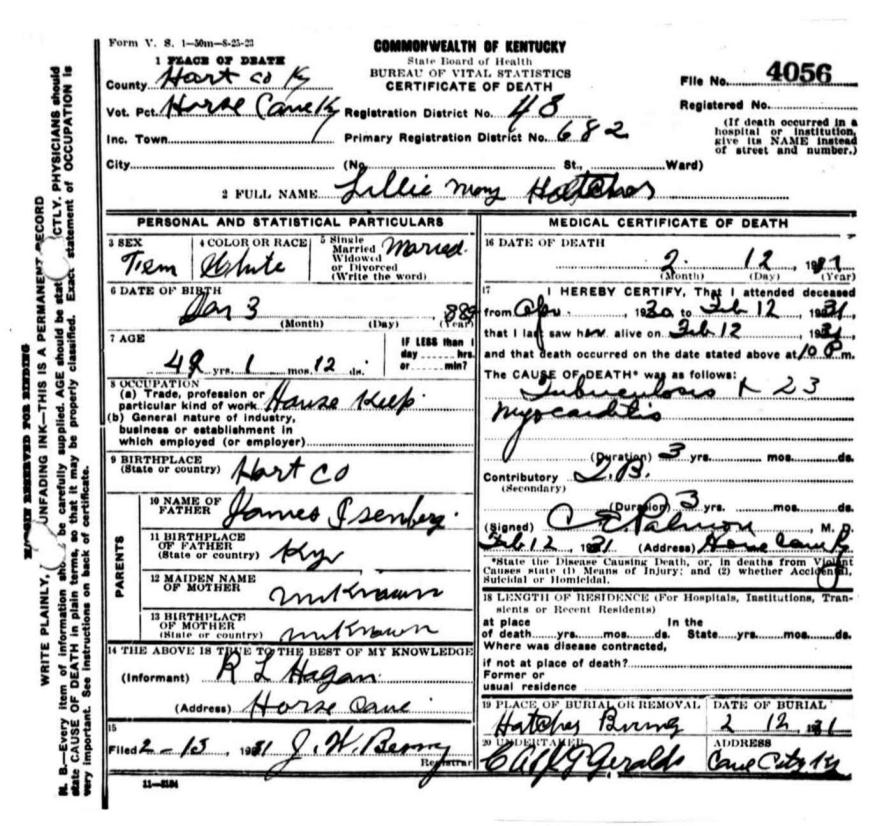 Form V. S. 1—50m—8-25-23
COMMONWEALTH OF KENTUCKY
State Board of Health
BUREAU OF VITAL STATISTICS
CERTIFICATE OF DEATH
1 PLACE OF DEATH
County Hart co Ky
Vot. Pct. Horse Cave Ky Registration District No. 43
Inc. Town Primary Registration District No. 682
City (No. St., Ward)
File No. 4056
Registered No.
(If death occurred in a
hospital or institution,
give its NAME instead
of street and number.)
2 FULL NAME Lillie Mary Hatcher
PERSONAL AND STATISTICAL PARTICULARS
3 SEX Fem
4 COLOR OR RACE White
5 Single
Married
Widowed
or Divorced
(Write the word) Married
6 DATE OF BIRTH
3 889
(Month) (Day) (Year)
7 AGE
yrs. 1 mos. 12 ds.
IF LESS than 1
day hrs.
or min?
8 OCCUPATION
(a) Trade, profession or
particular kind of work House Keep.
(b) General nature of industry,
business or establishment in
which employed (or employer)
9 BIRTHPLACE
(State or country) Hart co
PARENTS
10 NAME OF
FATHER James Isenberg.
11 BIRTHPLACE
OF FATHER
(State or country) Ky
12 MAIDEN NAME
OF MOTHER unKnown
13 BIRTHPLACE
OF MOTHER
(State or country) unKnown
14 THE ABOVE IS TRUE TO THE BEST OF MY KNOWLEDGE
(Informant) R L Hagan
(Address) Horse Cave
15
Filed 2-15, 1931 J. W. Berry
Registrar
11—3184
MEDICAL CERTIFICATE OF DEATH
16 DATE OF DEATH
2 12
(Month) (Day) (Year)
17 I HEREBY CERTIFY, That I attended deceased
from Apr. 1930 to Feb 12, 1931
that I last saw her alive on Feb 12, 1931
and that death occurred on the date stated above at 10 P.m.
The CAUSE OF DEATH* was as follows:
Tuberculosis 23
myocarditis
(Duration) 3 yrs. mos. ds.
Contributory T.B.
(Secondary)
(Duration) 3 yrs. mos. ds.
(Signed) C E Palmore, M. D.
Feb 12, 1931 (Address) Horse Cave Ky
*State the Disease Causing Death, or, in deaths from Violent
Causes state (1) Means of Injury; and (2) whether Accidental,
Suicidal or Homicidal.
18 LENGTH OF RESIDENCE (For Hospitals, Institutions, Tran-
sients or Recent Residents)
at place In the
of death yrs. mos. ds. State yrs. mos. ds.
Where was disease contracted,
if not at place of death?
Former or
usual residence
19 PLACE OF BURIAL OR REMOVAL DATE OF BURIAL
Hatcher 2 12 31
20 UNDERTAKER ADDRESS
Geralds Cave City Ky
RESERVED FOR BINDING
WRITE PLAINLY, UNFADING INK—THIS IS A PERMANENT RECORD
N. B.—Every item of information should be carefully supplied. AGE should be stat CTLY. PHYSICIANS should
state CAUSE OF DEATH in plain terms, so that it may be properly classified. Exact statement of OCCUPATION is
very important. See instructions on back of certificate.